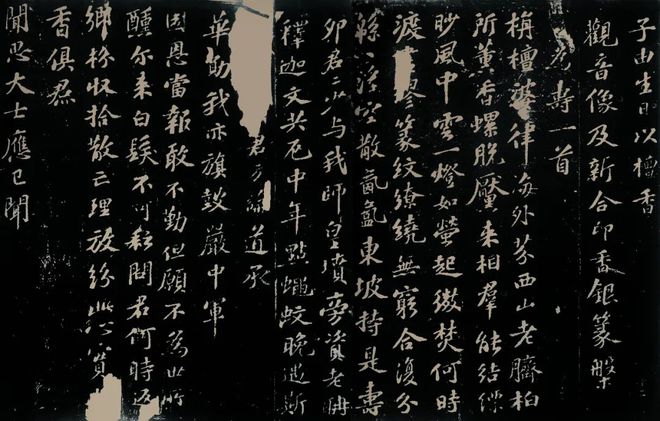 子由生日以檀香
觀音像及新合印香銀篆槃
為壽一首
栴檀婆律海外芬西山老臍柏
所薰香螺脫黶來相羣能結縹
眇風中雲一燈如螢起微焚何時
渡繆篆紋繚繞無窮合復分
綿綿浮空散氤氳東坡持是壽
卯君君少与我師皇墳旁資老聃
釋迦文共厄中年點蠅蚊晚遇斯
君方論道承
華勛我亦旗鼓嚴中軍
國恩當報敢不勤但願不為世所
醺尔來白髮不可耘問君何時返
鄉枌收拾散亡理放紛此心實
香俱焄
聞思大士應已聞